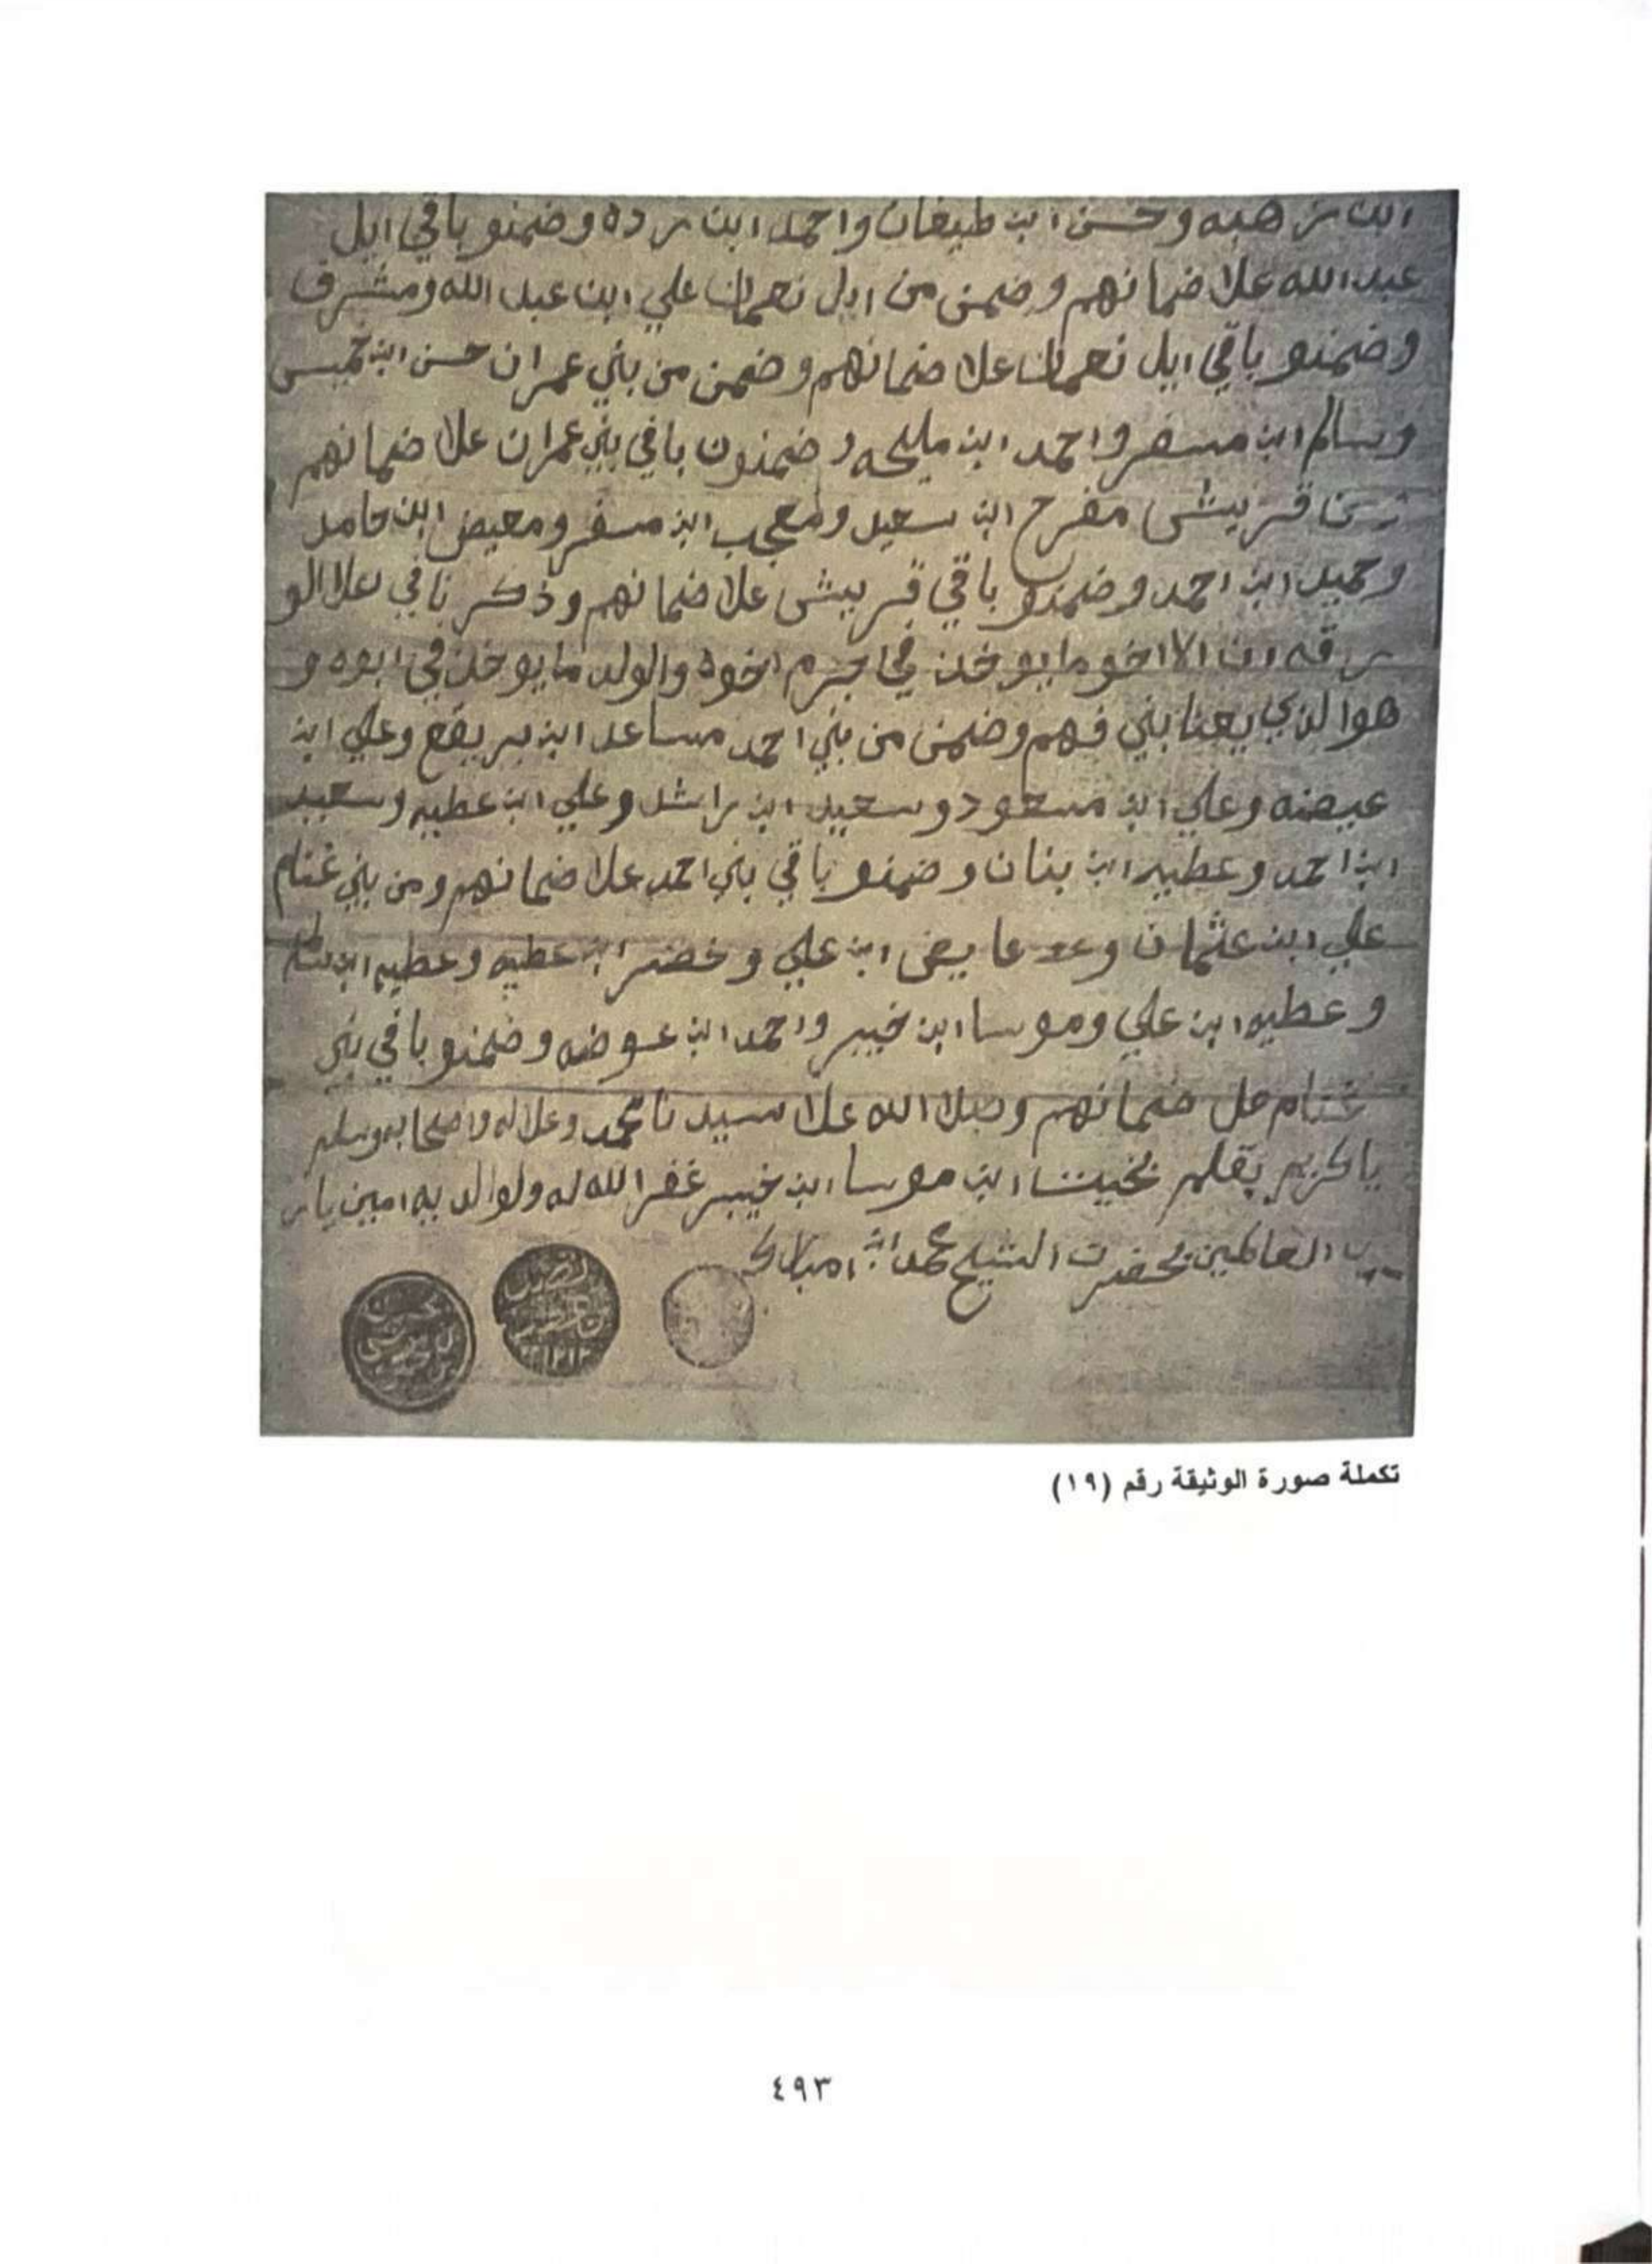 ابن زهبه وحسن ابن طيفان واحمد ابن رده وضمنو باقي ايل
عبد الله علا ضمانهم وضمن من ايل نعمان علي ابن عبد الله ومشرف
وضمنو باقي ايل نعمان علا ضمانهم وضمن من بني عمران حسن ابن خميس
وسالم ابن مسفر واحمد ابن مليحه وضمنون باقي بني عمران علا ضمانهم
ومن قريشى مفرح ابن سعيد ومعجب ابن مسفر ومعيض ابن حامد
وحميد ابن احمد وضمنو باقي قريشى علا ضمانهم وذكرنا في علا الو
رقه ان الاخو ما يوخذ في جرم اخوه والولد ما يوخذ في ابوه و
هوا لذي يعنا بني فهم وضمن من بني احمد مساعد ابن بريقع وعلي ابن
عيضه وعلي ابن مسعود وسعيد ابن راشد وعلي ابن عطيه وسعيد
ابن احمد وعطيه ابن بنان وضمنو باقي بني احمد علا ضمانهم ومن بني غنام
علي ابن عثمان وعد عايض ابن علي وخضر ابن عطيه وعطيه ابن
وعطيه ابن علي وموسا ابن خيير واحمد ابن عوضه وضمنو باقي بني
غنام عل ضمانهم وصلا الله علا سيدنا محمد وعلا اله واصحابه وسلم
يا كريم بقلم بخيت ابن موسا ابن خيير غفر الله له ولوالديه امين يا ر
ب العالمين بحضرت الشيخ محمد ابن امبارك
تكملة صورة الوثيقة رقم (١٩)
٤٩٣